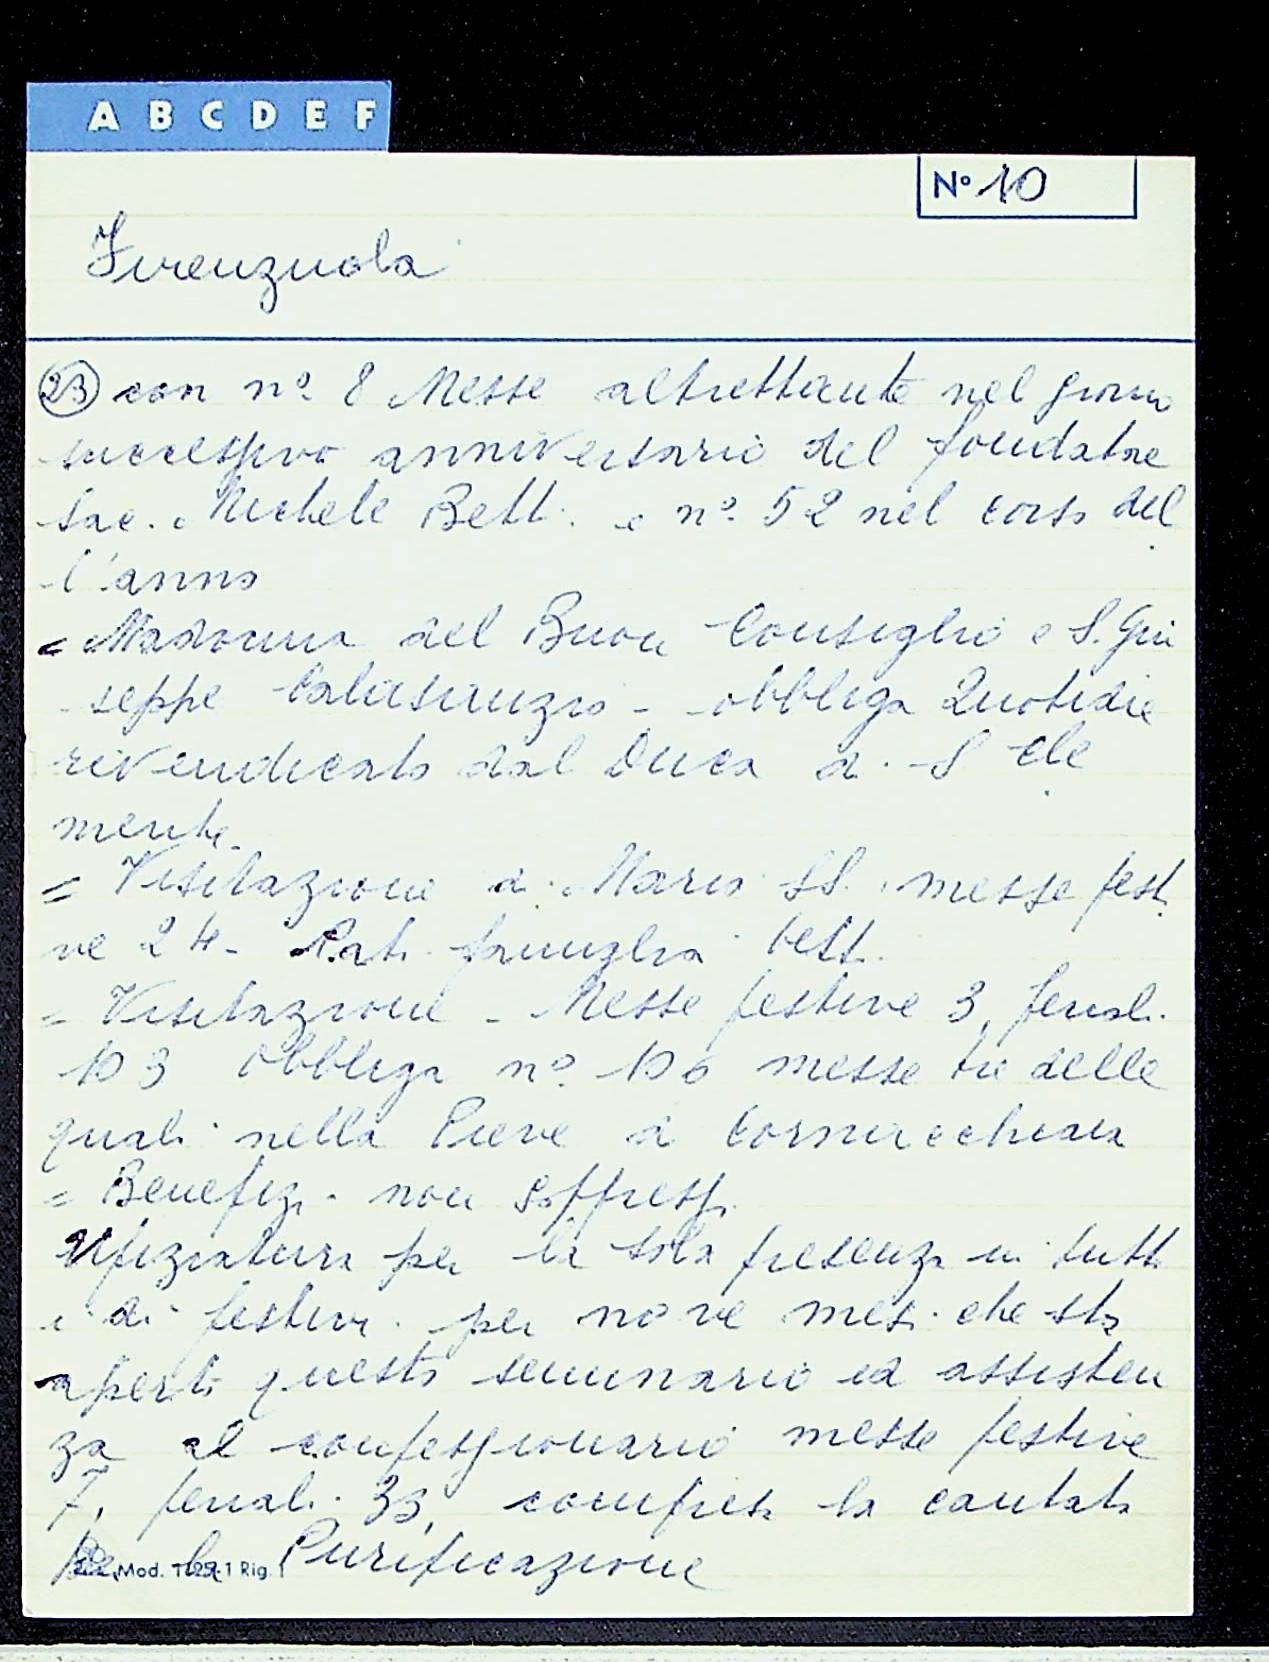 A B C D E F
N° 10
Firenzuola
23 con n°. 8 Messe altrettante nel giorno
successivo anniversario del fondatore
Sac. Michele Betti e n°. 52 nel corso del
l'anno
= Madonna del Buon Consiglio e S. Giu
seppe Calasanzio - obbligo Quotidie
rivendicato dal Duca di S Cle
mente.
= Visitazione di Maria SS. messe festi
ve 24 - Pat. famiglia Betti.
= Visitazione - Messe festive 3, feriali
103 obbligo n°. 106 messe tre delle
quali nella Pieve di Cornacchiaia
= Benefizi non soppressi
Ufiziatura per la sola presenza in tutti
i dì festivi per nove mesi che sta
aperto questo seminario ed assisten
za al confessionario messe festive
7, feriali 33, compresa la cantata
per la Purificazione
Mod. T 29-1 Rig.